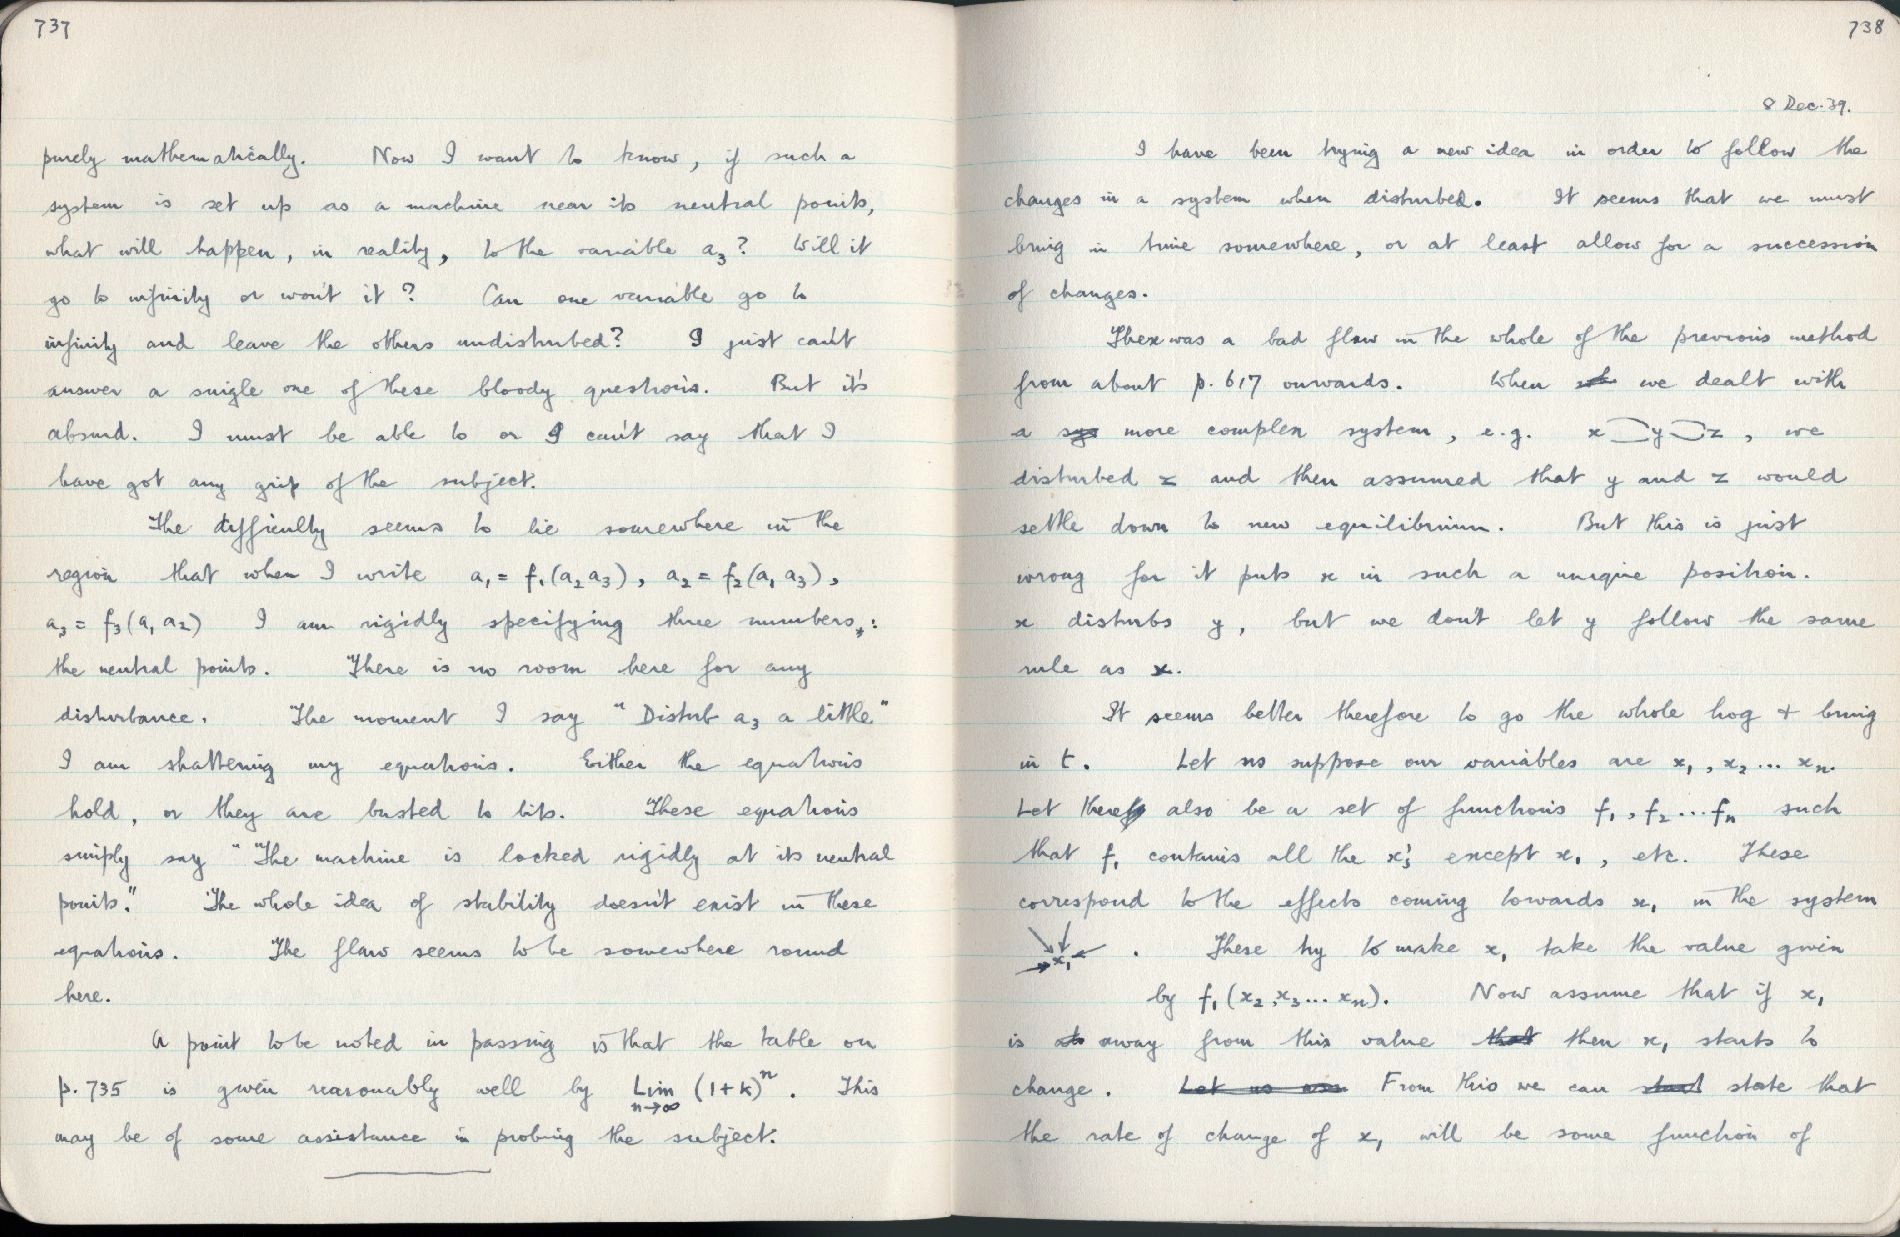 737
purely mathematically. Now I want to know, if such a
system is set up as a machine near its neutral points,
what will happen, in reality, to the variable a₃? Will it
go to infinity or won't it? Can one variable go to
infinity and leave the others undisturbed? I just can't
answer a single one of these bloody questions. But it's
absurd. I must be able to or I can't say that I
have got any grip of the subject.
The difficulty seems to lie somewhere in the
region that when I write a₁ = f₁(a₂ a₃), a₂ = f₂(a₁ a₃),
a₃ = f₃(a₁ a₂) I am rigidly specifying three numbers,:
the neutral points. There is no room here for any
disturbance. The moment I say "Disturb a₃ a little"
I am shattering my equations. Either the equations
hold, or they are busted to bits. These equations
simply say "The machine is locked rigidly at its neutral
points." The whole idea of stability doesn't exist in these
equations. The flaw seems to be somewhere round
here.
A point to be noted in passing is that the table on
p. 735 is given reasonably well by Lim (1+k)ⁿ. This
n→∞
may be of some assistance in probing the subject.
738
8 Dec. 39.
I have been trying a new idea in order to follow the
changes in a system when disturbed. It seems that we must
bring in time somewhere, or at least allow for a succession
of changes.
There was a bad flaw in the whole of the previous method
from about p. 617 onwards. When we dealt with
a sys more complex system, e.g. x y z, we
disturbed z and then assumed that y and z would
settle down to new equilibrium. But this is just
wrong for it puts x in such a unique position.
x disturbs y, but we don't let y follow the same
rule as x.
It seems better therefore to go the whole hog + bring
in t. Let us suppose our variables are x₁, x₂ ... xₙ.
Let there also be a set of functions f₁, f₂ ... fₙ such
that f₁ contains all the x's except x₁, etc. These
correspond to the effects coming towards x₁ in the system
x₁ . These try to make x₁ take the value given
by f₁(x₂, x₃ ... xₙ). Now assume that if x₁
is away from this value that then x₁ starts to
change. Let us ass From this we can start state that
the rate of change of x₁ will be some function of